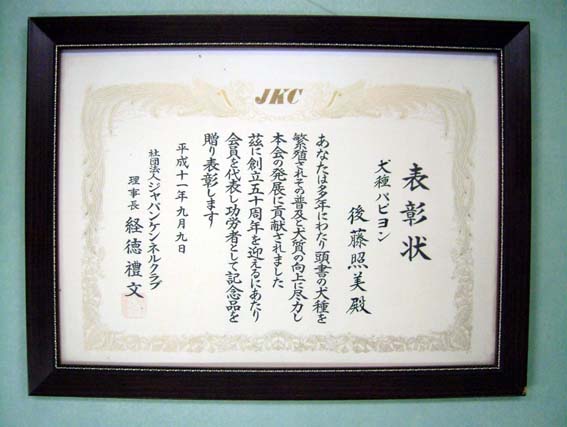 JKC
表彰状
犬種パピヨン
後藤照美殿
あなたは多年にわたり頭書の犬種を
繁殖されその普及と犬質の向上に尽力し
本会の発展に貢献されました
茲に創立五十周年を迎えるにあたり
会員を代表し功労者として記念品を
贈り表彰します
平成十一年九月九日
社団法人ジャパンケンネルクラブ
理事長 経徳禮文